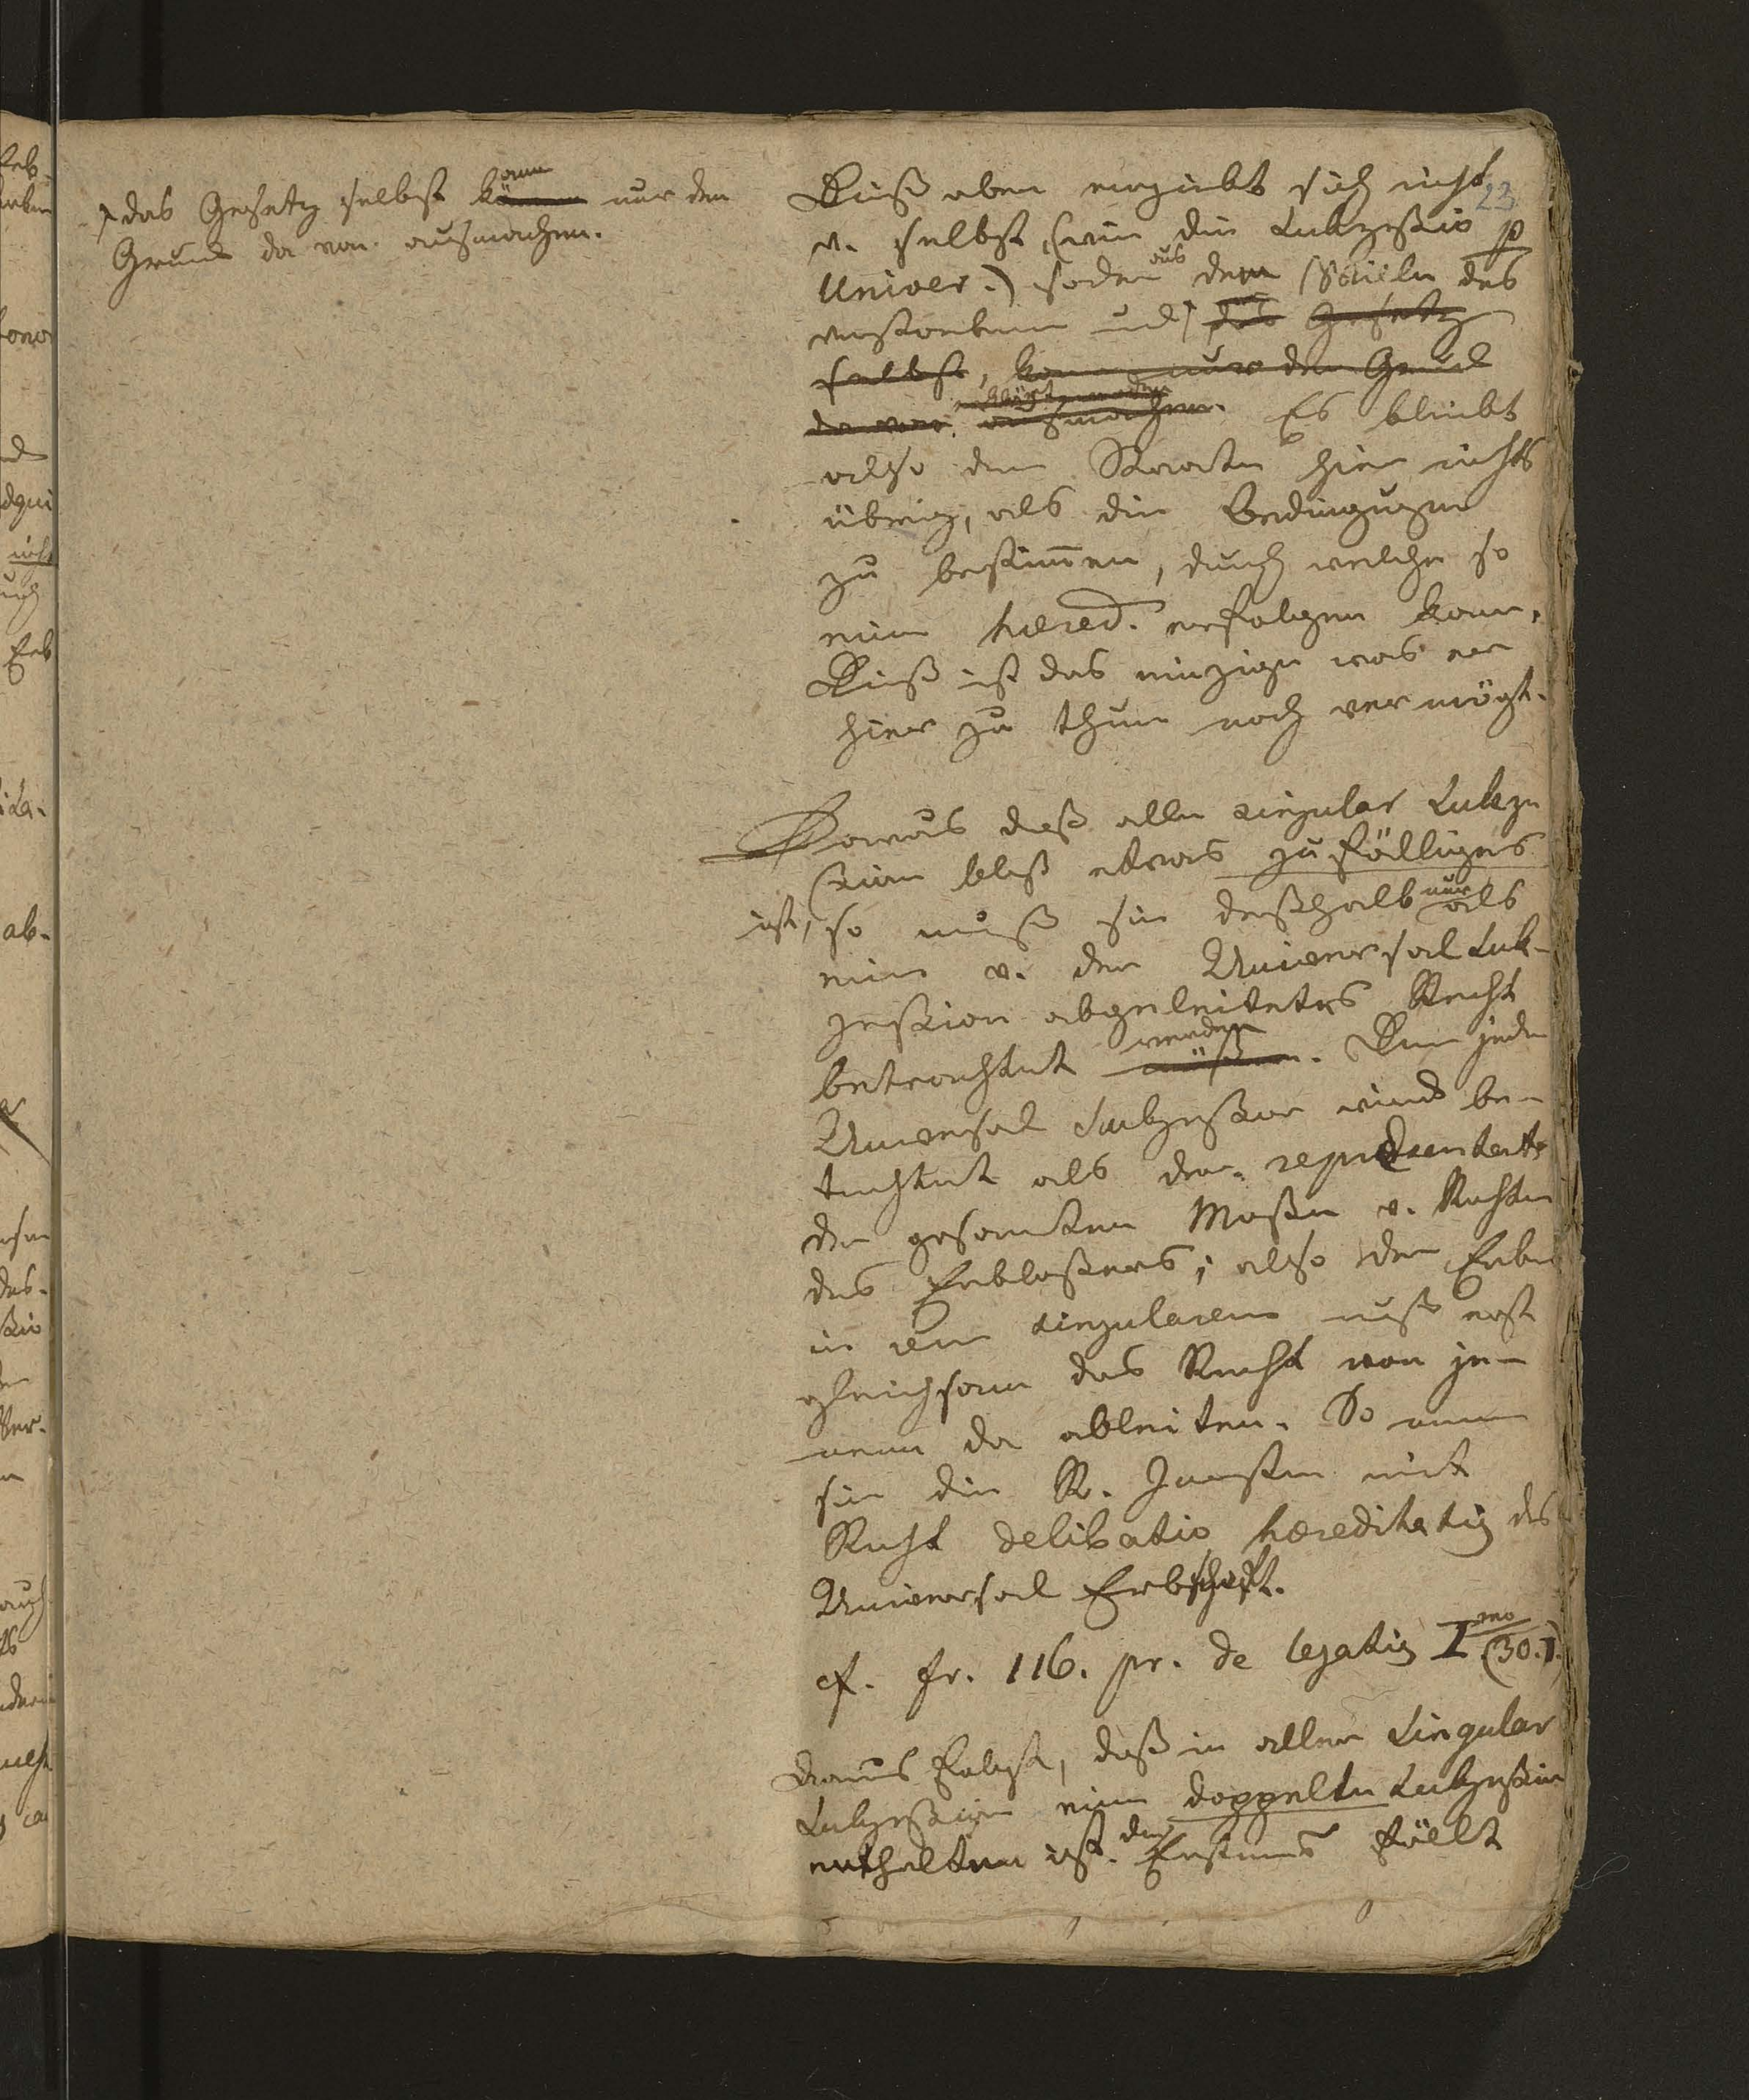 das Gesetz selbst kann nur den
Grund da von ausmachen.
23
Dieß aber ergiebt sich nicht
v. selbst, (wie die Sukzessio p
Univer.) sodern aus dem Willen des
verstorbenen und das Gesetz
selbst, kann nur den Grund
da von ausmachen. Es bleibt
also dem Staate hier nichts
übrig, als die Bedingungen
zu bestim̄en, durch welche so
eine hered. erfolgen kann.
Dieß ist das einzige was er
hier zu thun noch vermögt.
Daraus daß alle singular Sukze
ssion bloß etwas zufälliges
ist, so muß sie deßhalb nur als
eine v. der Universal Suk-
zession abgeleitetes Recht
betrachtet werden müßen. Denn jeder
Universal Sukzessor wird be-
trachtet als der repraesentate
der gesamten Maßen v. Rechten
des Erblaßers; also der Erbe
in rem singularem muß erst
gleichsam das Recht von je-
nem da ableiten. So nennen
sie die R. Juristen mit
Recht delibatio haereditatis des
Universal Erbschaft.
cf. fr. 116. pr. de legatis I mo (30.)
Daraus folgt, daß in aller Singular
Sukzession eine doppelte Sukzession
enthalten ist. den Erstens fällt